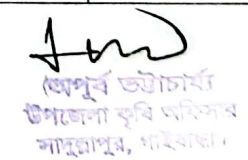 (অপূর্ব ভট্টাচার্য্য)
উপজেলা কৃষি অফিসার
সাদুল্লাপুর, গাইবান্ধা।